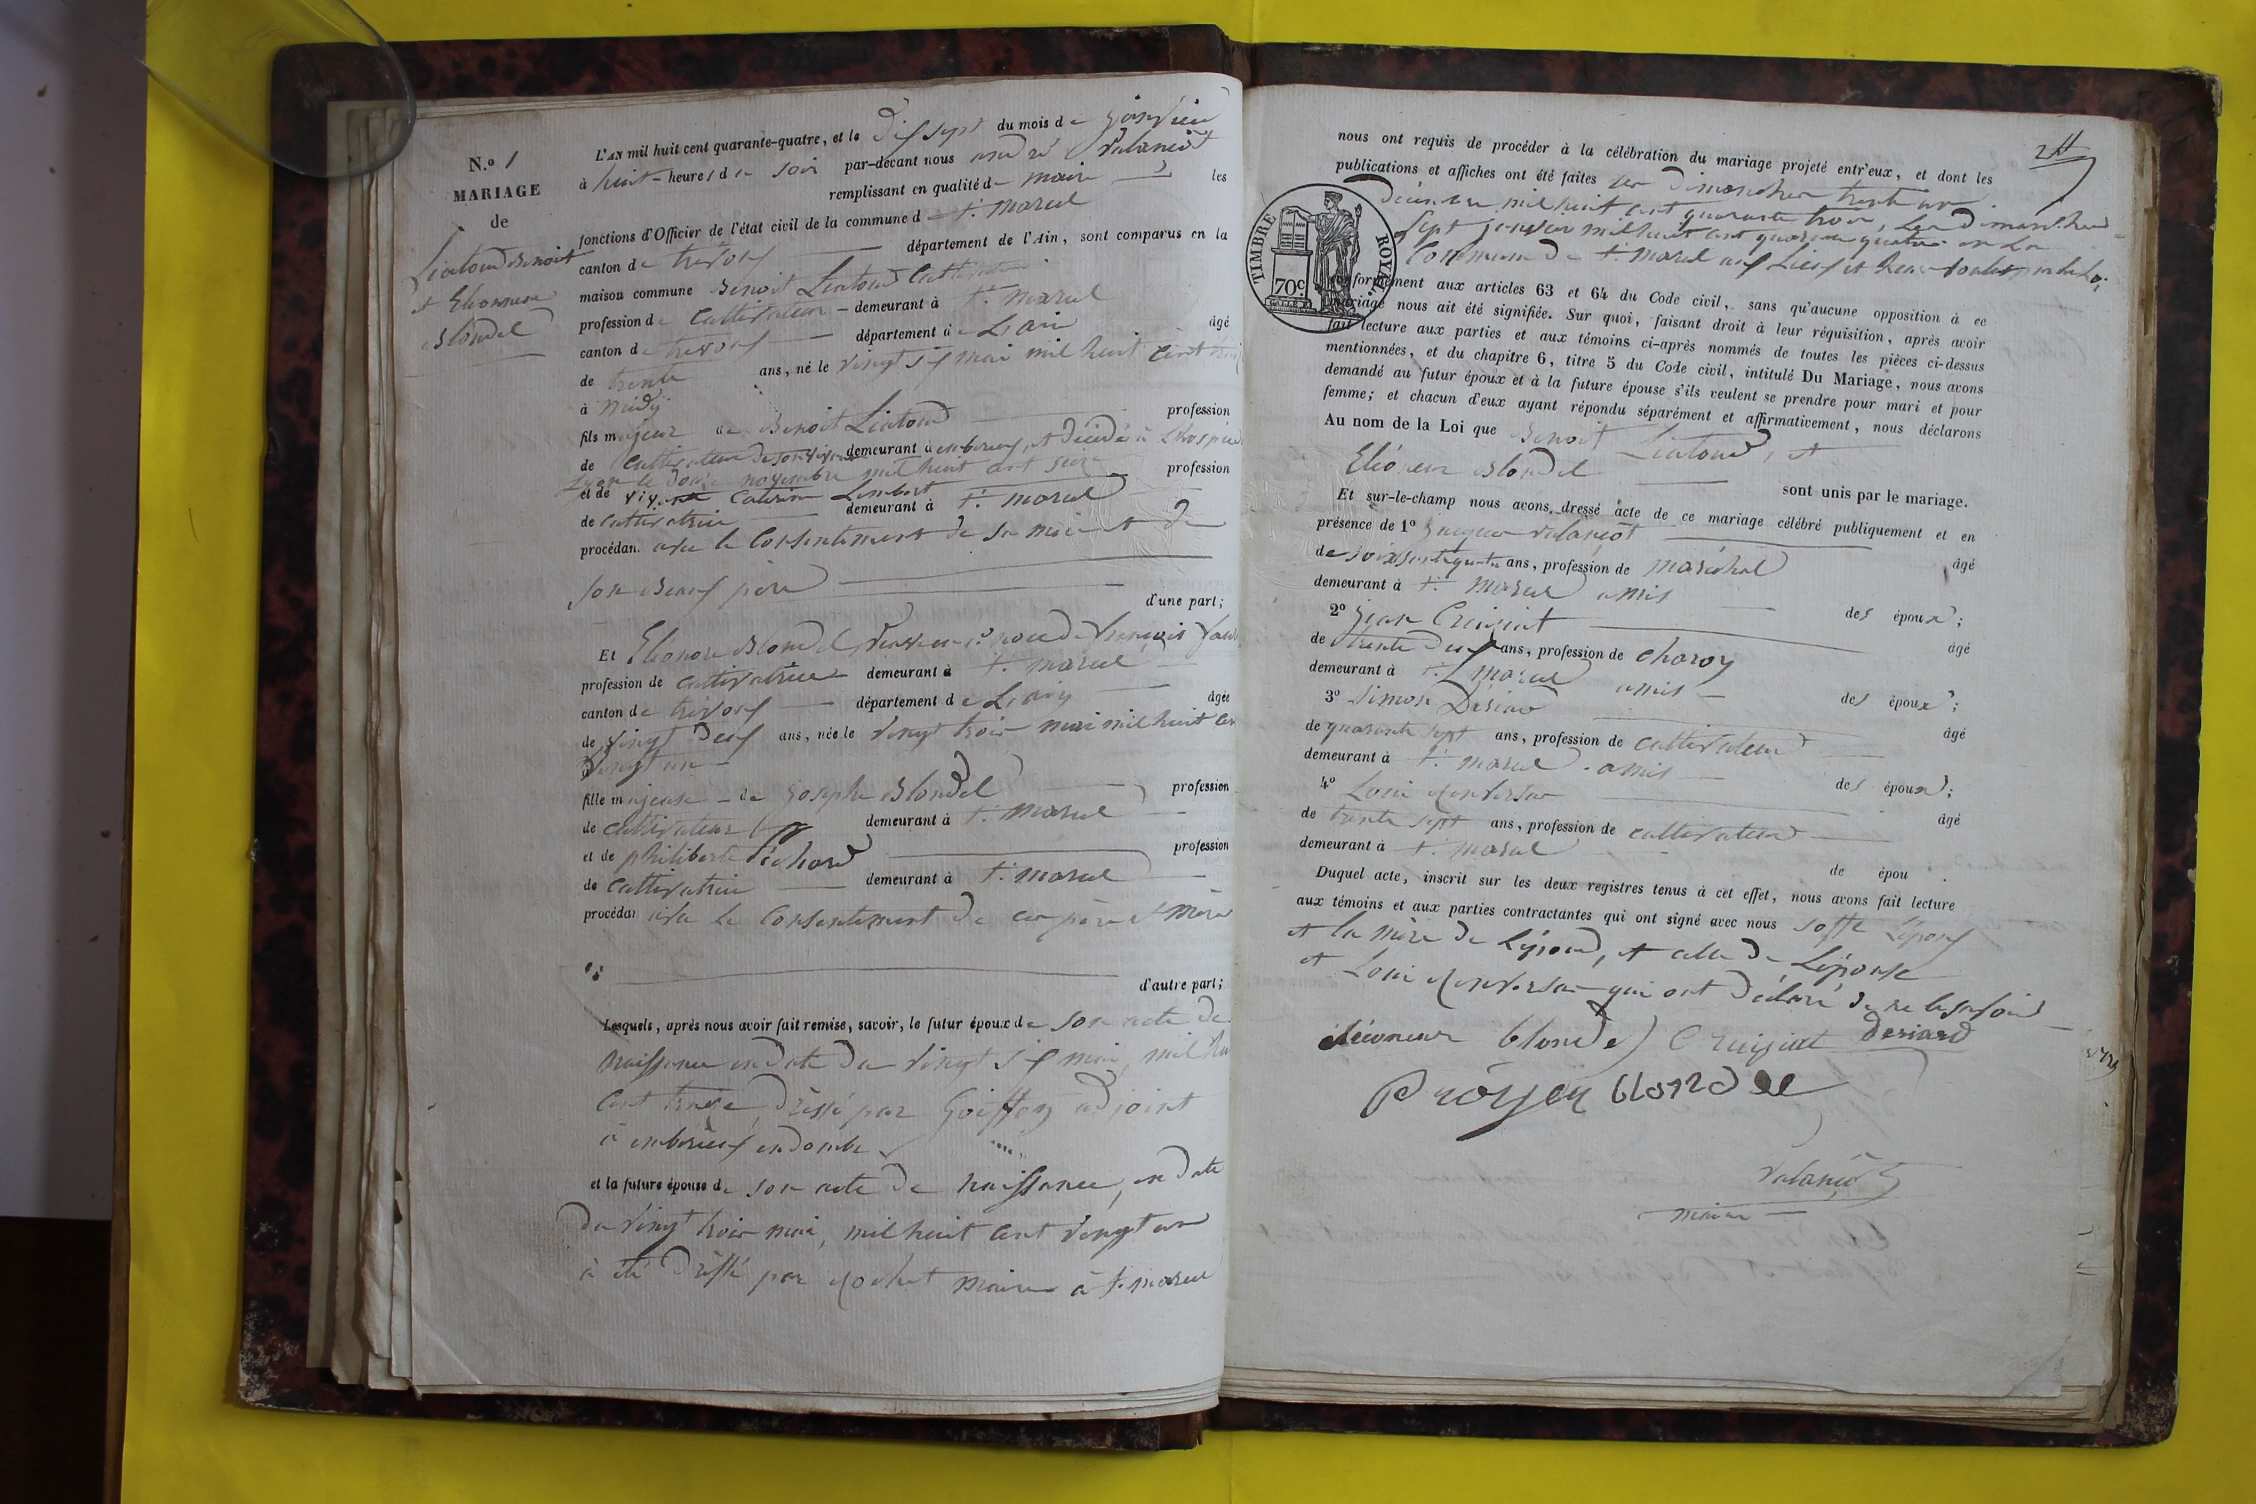 N.o 1
MARIAGE
de
Liatoud Benoit
et Elionneur
Blondel
L'AN mil huit cent quarante-quatre, et le dix sept du mois de janvier
à huit heures du soir par-devant nous andré Valançot
remplissant en qualité de maire les
fonctions d'Officier de l'état civil de la commune de St. Marcel
canton de trevoux département de l'Ain, sont comparus en la
maison commune Benoit Liatoud Cultivateur
profession de Cultivateur demeurant à St. Marcel
canton de trevoux département de L'ain âgé
de trente ans, né le vingt six mai mil huit cent
à midy
fils majeur de Benoit Liatoud profession
de Cultivateur de son vivant demeurant à embérieux, et décédé à L'hospice
Lyon le douze novembre mil huit cent seize profession
et de vivante Lembert
de Cultivatrice demeurant à St. Marcel
procédan. avec le Consentement de sa mère et de
son Beaux père
d'une part;
Et Elionore Blondel veuve en 1re noce de François
profession de Cultivatrice demeurant à St. Marcel
canton de trevoux département de L'ain âgée
de vingt deux ans, née le vingt trois mai mil huit cent
vingt un
fille majeure de Joseph Blondel profession
de Cultivateur demeurant à St. Marcel
et de philiberte Péchard profession
de Cultivatrice demeurant à St. Marcel
procédan avec Le Consentement de ces père et Mère
d'autre part;
Lesquels, après nous avoir fait remise, savoir, le futur époux de son acte de
naissance en date du vingt six mai, mil huit
cent treize, dressé par Goiffon adjoint
à embérieux en dombe
et la future épouse de son acte de naissance, en date
du vingt trois mai, mil huit cent vingt un
à été dressé par Rochet maire à St. Marcel
24
nous ont requis de procéder à la célébration du mariage projeté entr'eux, et dont les
publications et affiches ont été faites les dimanches trente un
décembre mil huit cent quarante trois, Les dimanches
sept janvier mil huit cent quarante quatre en La
Commune de St. Marcel aux Lieux et heures voulus par la Loi
TIMBRE ROYAL.
70c.
conformément aux articles 63 et 64 du Code civil, sans qu'aucune opposition à ce
mariage nous ait été signifiée. Sur quoi, faisant droit à leur réquisition, après avoir
fait lecture aux parties et aux témoins ci-après nommés de toutes les pièces ci-dessus
mentionnées, et du chapitre 6, titre 5 du Code civil, intitulé Du Mariage, nous avons
demandé au futur époux et à la future épouse s'ils veulent se prendre pour mari et pour
femme; et chacun d'eux ayant répondu séparément et affirmativement, nous déclarons
Au nom de la Loi que Benoit Liatoud, et
Eliöneur Blondel sont unis par le mariage.
Et sur-le-champ nous avons dressé acte de ce mariage célébré publiquement et en
présence de 1o Jacques Valançot âgé
de soixsentequatre ans, profession de maréchal
demeurant à St. Marcel amis des époux;
2o Jean Cruiziat âgé
de trente deux ans, profession de charon
demeurant à St. Marcel amis des époux;
3o Simon Désiard âgé
de quarante sept ans, profession de cultivateur
demeurant à St. Marcel amis des époux;
4o Loui Converser âgé
de trente sept ans, profession de cultivateur
demeurant à St. Marcel de épou
Duquel acte, inscrit sur les deux registres tenus à cet effet, nous avons fait lecture
aux témoins et aux parties contractantes qui ont signé avec nous soffe L'époux
et La mère de L'époux, et celle de L'épouse
et Loui Converser qui ont déclaré de ne Le savoir
éléoneur blondel Cruiziat desiard
Proyer blondel
Valançot
maire